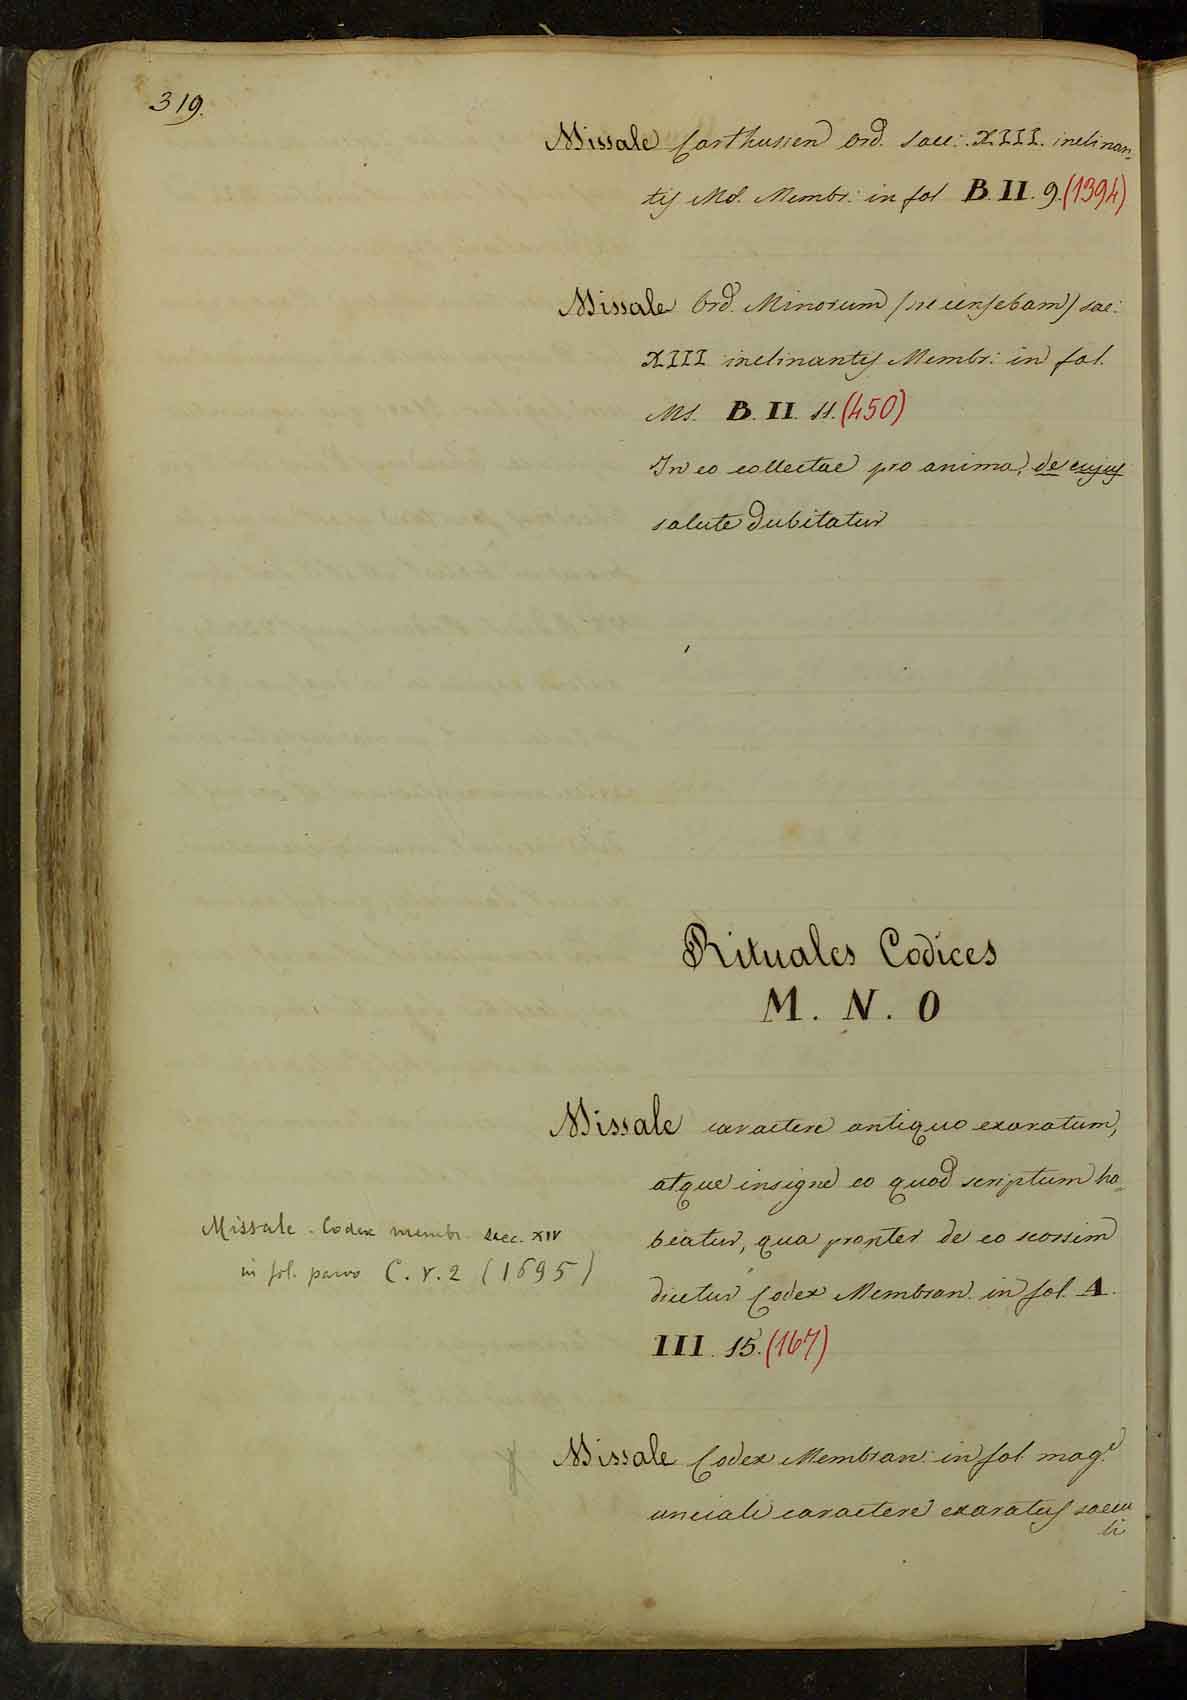 319.
Missale Carthusien Ord. saec: XIII. inclinan-
tis Md. Membr: in fol B. II. 9. (1394)
Missale Ord. Minorum (ut censebam) sae:
XIII inclinantis Membr: in fol.
Ms. B. II. 11. (450)
In eo collectae pro anima, de cujus
salute dubitatur
Rituales Codices
M. N. O
Missale caractere antiquo exaratum,
atque insigne eo quod scriptum ha-
beatur, qua propter de eo seorsim
dicetur Codex Membran. in fol. A.
III. 15. (167)
Missale. Codex membr. saec. XIV
in fol. parvo C. V. 2 (1695)
Missale Codex Membran: in fol. mag.
unciali caractere exaratus saecu
li